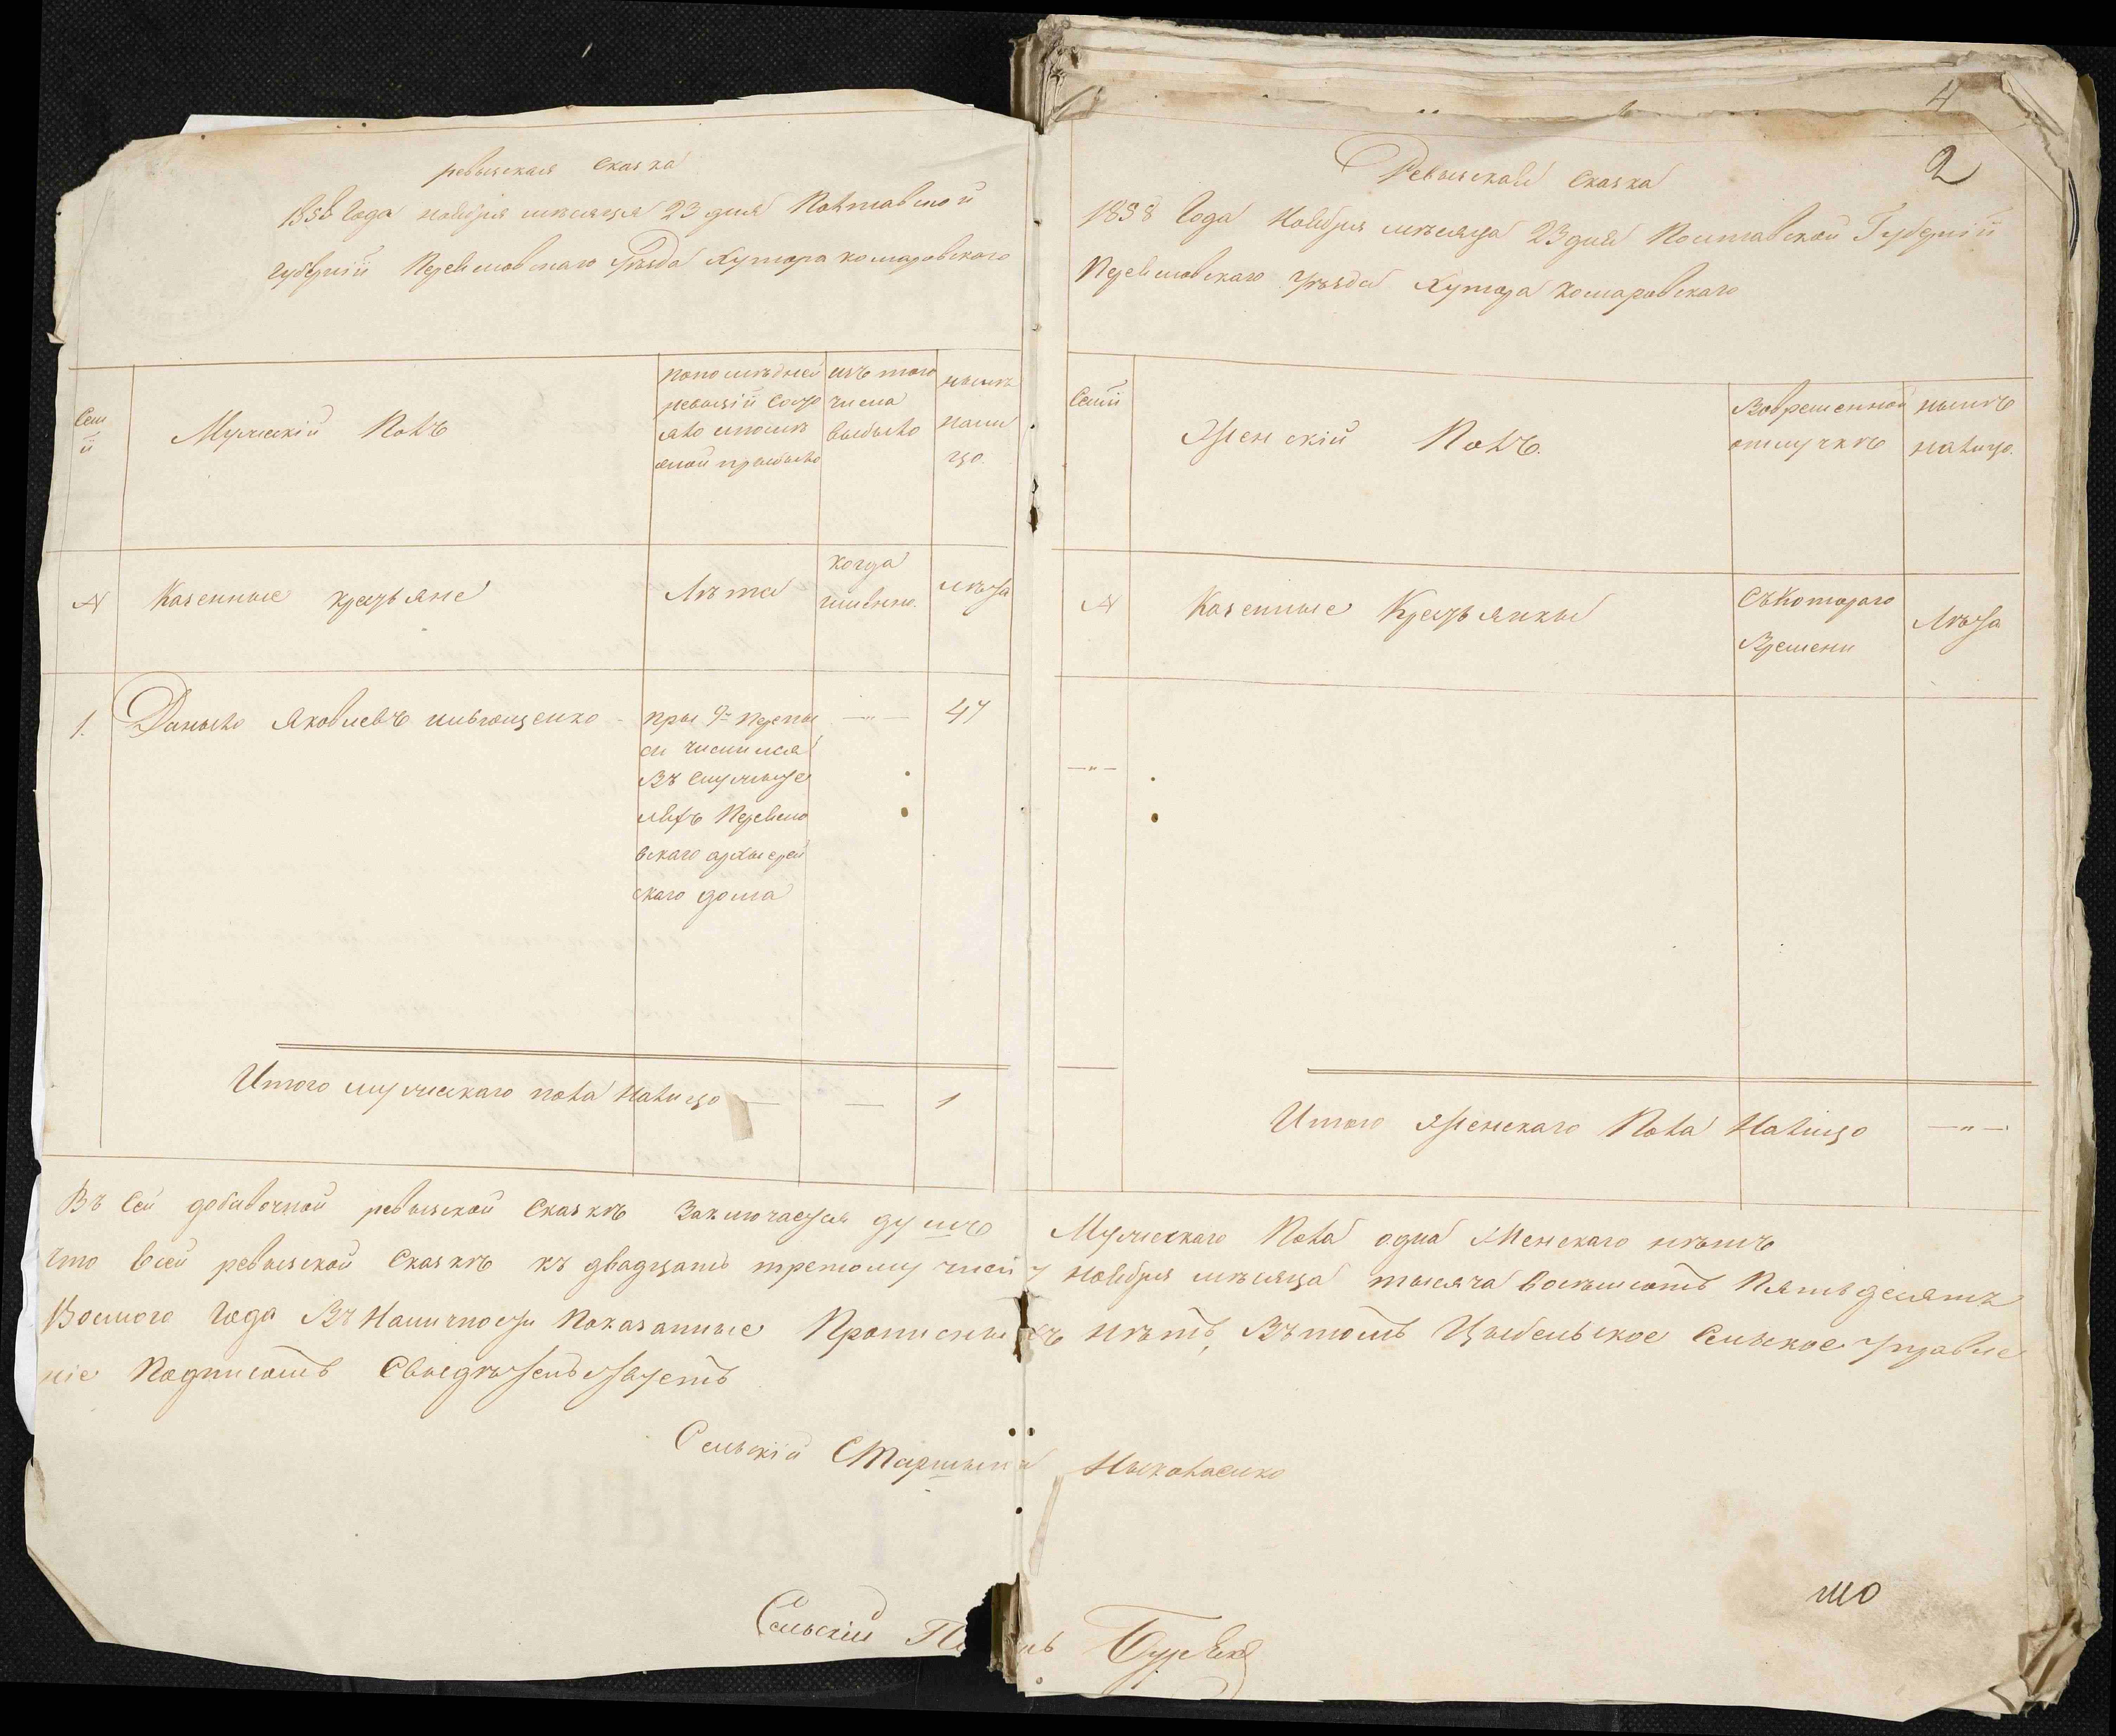 ревызская сказка
1858 Года ноября мѣсяця 23 дня Полтавской
губерніи Переяславскаго Уѣзда Хутора комаровского
Сем
іи
Мужескій Полъ
попослѣдней
ревызіи Состо
яло
прыбыло
изъ того
числа
выбыло
нынѣ
нали
цо.
N
Казенные крестьяне
Лѣта
когда
именно.
Лѣта
1.
Даныло Яковлевъ
пры 9й перепы
си числился
Въ служыте
ляхъ Переясло
вскаго архыерей
скаго дома
47
Итого мужескаго пола налицо — — 1
4
2
Ревызская Сказка
1858 Года Ноября мѣсяца 23 дня Полтавской Губерніи
Переяславскаго Уѣзда Хутора комаровскаго
Семіи
Женскій Полъ.
Вовременной
отлучкѣ
нынѣ
налицо.
N
Казенные Крестьянкы
Съкотораго
Времени
Лѣта
Итого Женскаго Пола Налицо —"—
Въ Сей добавочной ревызской Сказкѣ Заключается душъ Мужескаго Пола одна Женскаго нѣтъ
что всей ревызской Сказкѣ къ двадцать третому числу ноября мѣсяца тысяча восемсотъ Пятьдесятъ
Восмого Года Въ Наличносты Показанные Прописныхъ нѣтъ, Въ томъ Цыбельское Сельское Управле
ніе Подписомъ Свыдѣтельствуетъ
Сельскій Старшына Ныколаенко
Сельскій